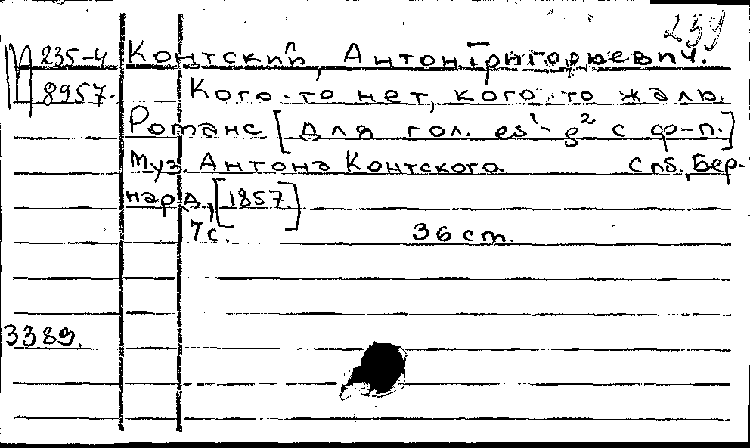 239
М 235-4 Контский, Антон Григорьевич.
8957. Кого-то нет, кого-то жаль.
Романс [для гол. es¹-g² с ф-п.]
Муз. Антона Контского. Спб., Бер-
нард, [1857.]
7с. 36 cm.
3389.